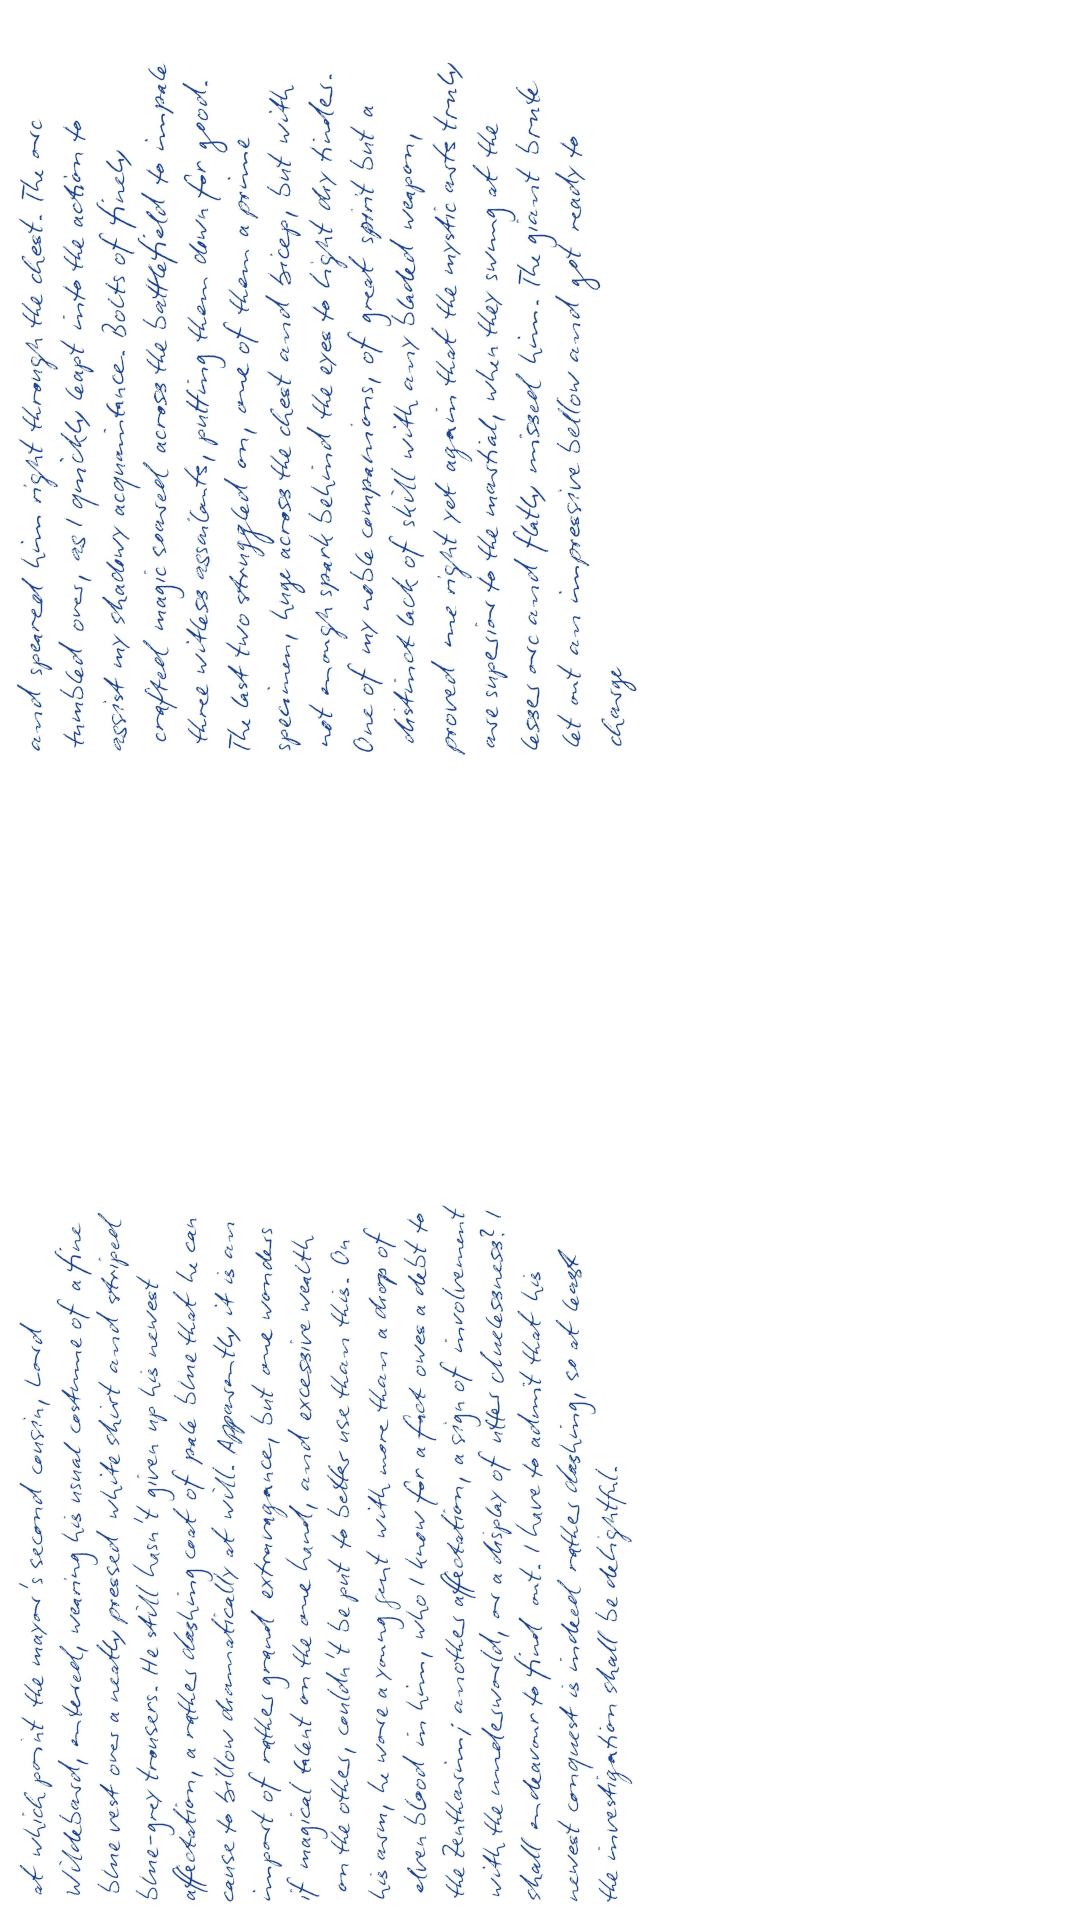 at which point the mayor's second cousin, Lord
Wildebard, entered, wearing his usual costume of a fine
blue vest over a neatly pressed white shirt and striped
blue-grey trousers. He still hasn't given up his newest
affectation, a rather dashing coat of pale blue that he can
cause to billow dramatically at will. Apparently it is an
import of rather grand extravagance, but one wonders
if magical talent on the one hand, and excessive wealth
on the other, couldn't be put to better use than this. On
his arm, he wore a young gent with more than a drop of
elven blood in him, who I know for a fact owes a debt to
the Zentharim; another affectation, a sign of involvement
with the underworld, or a display of utter cluelessness? I
shall endeavour to find out. I have to admit that his
newest conquest is indeed rather dashing, so at least
the investigation shall be delightful.
and speared him right through the chest. The orc
tumbled over, as I quickly leapt into the action to
assist my shadowy acquaintance. Bolts of finely
crafted magic soared across the battlefield to impale
three witless assailants, putting them down for good.
The last two struggled on, one of them a prime
specimen, huge across the chest and bicep, but with
not enough spark behind the eyes to light dry tinder.
One of my noble companions, of great spirit but a
distinct lack of skill with any bladed weapon,
proved me right yet again that the mystic arts truly
are superior to the martial, when they swung at the
lesser orc and flatly missed him. The giant brute
let out an impressive bellow and got ready to
charge